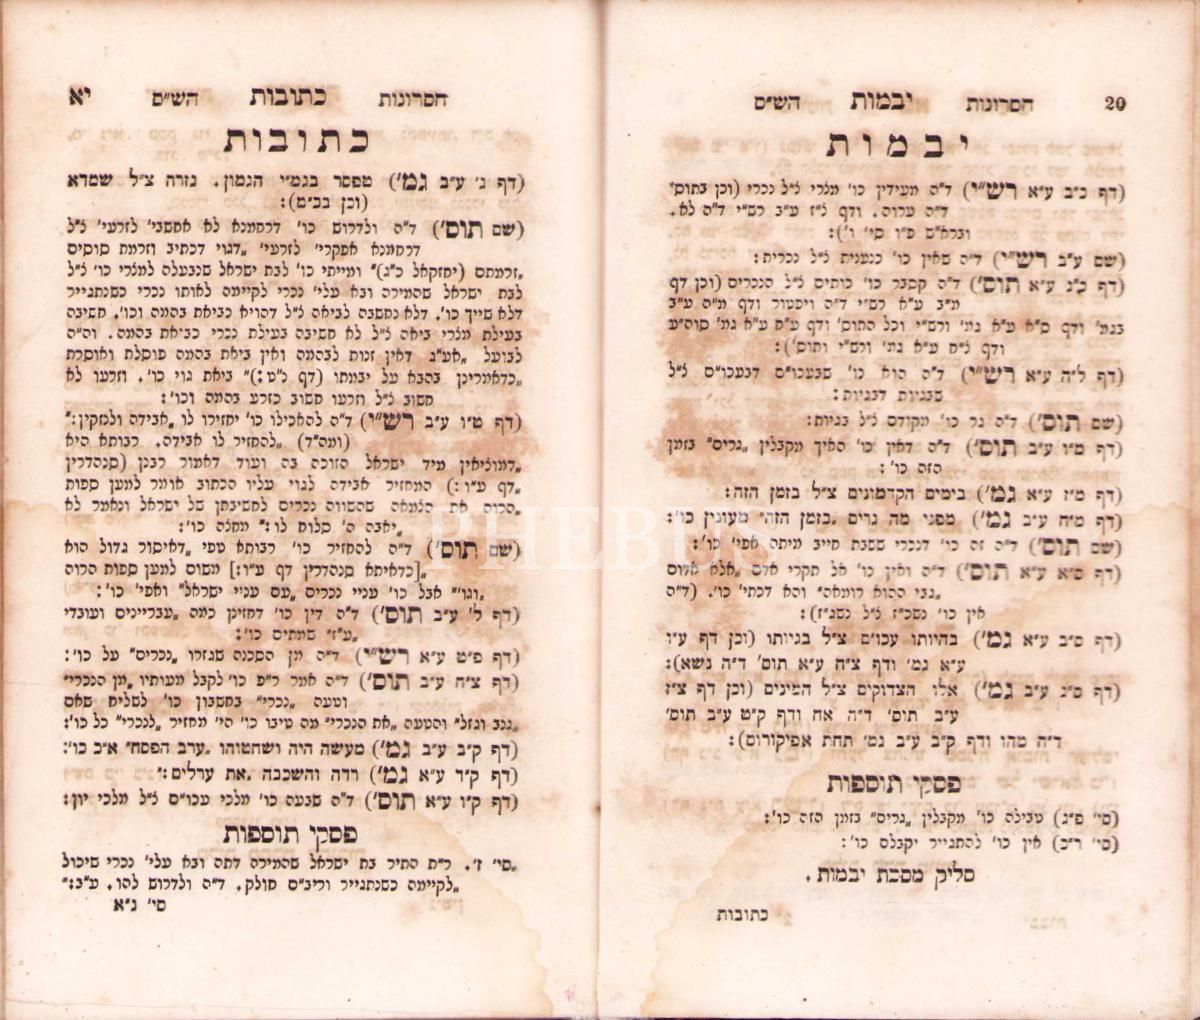 20 חסרונות יבמות הש״ס
יבמות
(דף כ״ב ע״א רש״י) ד״ה מעידין כו׳ מצרי צ״ל נכרי (וכן בתוס׳
ד״ה ערוה. ודף ל״ז ע״ב רש״י ד״ה לא.
וברא״ש פ״ו סי׳ ו׳):
(שם ע״ב רש״י) ד״ה שאין כו׳ כנענית צ״ל נכרית:
(דף כ״ג ע״א תוס׳) ד״ה קסבר כו׳ כותים צ״ל הנכרים (וכן דף
מ״ב ע״א רש״י ד״ה ויפטור ודף מ״ה ע״ב
בגמ׳ ודף ס״א ע״א גמ׳ ורש״י וכל התוס׳ ודף ע״ח ע״א גמ׳
ודף צ״ח ע״א גמ׳ ורש״י ותוס׳):
(דף ל״ה ע״א רש״י) ד״ה הוא כו׳ שבעכו״ם דבעכו״ם צ״ל
שבגיות דבגיות:
(שם תוס׳) ד״ה גר כו׳ מקודם צ״ל בגיות:
(דף מ״ו ע״ב תוס׳) ד״ה דאין כו׳ האיך מקבלין „גרים״ בזמן
הזה כו׳:
(דף מ״ז ע״א גמ׳) בימים הקדמונים צ״ל בזמן הזה:
(דף מ״ח ע״ב גמ׳) מפני מה גרים „בזמן הזה״ מעונין כו׳:
(שם תוס׳) ד״ה זה כו׳ דנכרי ששבת חייב מיתה אפי׳ כו׳:
(דף ס״א ע״א תוס׳) ד״ה ואין כו׳ אל תקרי אדם „אלא אדום
„גבי ההוא רומאה״ והא דכתי׳ כו׳. (ד״ה
אין כו׳ נשכ״ז צ״ל נשג״ז):
(דף ס״ב ע״א גמ׳) בהיותו עכו״ם צ״ל בגיותו (וכן דף ע״ו
ע״א גמ׳ ודף צ״ח ע״א תוס׳ ד״ה נשא):
(דף ס״ג ע״ב גמ׳) אלו הצדוקים צ״ל המינים (וכן דף צ״ז
ע״ב תוס׳ ד״ה אח ודף ק״ט ע״ב תוס׳
ד״ה מהו ודף ק״ב ע״ב גמ׳ תחת אפיקורום):
פסקי תוספות
(סי׳ פ״ג) טבילה כו׳ מקבלין „גרים״ בזמן הזה כו׳:
(סי׳ ר״כ) אין כו׳ להתגייר יקבלס כו׳:
סליק מסכת יבמות.
כתובות
חסרונות כתובות הש״ס יא
כתובות
(דף ג׳ ע״ב גמ׳) מפסר בגמ״י הגמון. גזרה צ״ל שמדא
(וכן בב״מ):
(שם תוס׳) ד״ה ולדרוש כו׳ דרחמנא לא אחשבי׳ לזרעי׳ צ״ל
דרחמנא אפקרי׳ לזרעי׳ „דגוי דכתיב וזרמת סוסים
„זרמתם (יחזקאל כ״ג)״ ומייתי כו׳ לבת ישראל שנבעלה למצרי כו׳ צ״ל
לבת ישראל שהמירה ובא עלי׳ נכרי לקיימה לאותו נכרי כשנתגייר
דלא שייך כו׳. דלא נחשבה לביאה צ״ל דהויא כביאת בהמה וכו׳. חשיבה
בעילת מצרי ביאה צ״ל לא חשיבה בעילת נכרי כביאת בהמה. וה״ה
לבועל „אע״ג דאין זנות לבהמה ואין ביאת בהמה פוסלת ואוסרת
„כדאמרינן בהבא על יבמתו (דף נ״ט:)״ ביאת גוי כו׳. וזרעו לא
חשוב צ״ל וזרעו חשוב כזרע בהמה וכו׳:
(דף ט״ו ע״ב רש״י) ד״ה להאכילו כו׳ יחזירו לו „אבידה ולנזקין:״
(ומה״ד) „להחזיר לו אבידה. רבותא היא
„דמוציאין מיד ישראל הזוכה בה ועוד דאמור רבנן (סנהדרין
„דף ע״ו:) המחזיר אבידה לגוי עליו הכתוב אומר למען ספות
„הרוה את הצמאה שהשווה נכרים לחשיבתן של ישראל ונאמר לא
„יאבה ה׳ סלוח לו:״ מחצה כו׳:
(שם תוס׳) ד״ה להחזיר כו׳ רבותא טפי „דאיסור גדול הוא
„[כדאיתא סנהדרין דף ע״ו:] משום למען ספות הרוה
„וגו׳״ אבל כו׳ עניי נכרים „עם עניי ישראל״ ואפי׳ כו׳:
(דף ל׳ ע״ב תוס׳) ד״ה דין כו׳ דחזינן כמה „עבריינים ועובדי
„ע״ז״ שמתים כו׳:
(דף פ״ט ע״א רש״י) ד״ה מן הסכנה שגזרו „נכרים״ על כו׳:
(דף צ״ח ע״ב תוס׳) ד״ה אמר ר״פ כו׳ לקבל מעותיו „מן הנכרי״
וטעה „נכרי״ בחשבון כו׳ לשליח שאם
„גנב וגזל״ והטעה „את הנכרי״ מה טיבו כו׳ הי׳ מחזיר „לנכרי״ כל כו׳:
(דף ק״ב ע״ב גמ׳) מעשה היה ושחטוהו „ערב הפסח״ א״כ כו׳:
(דף ק״ד ע״א גמ׳) רדה והשכבה „את ערלים:״
(דף ק״ו ע״א תוס׳) ד״ה שבעה כו׳ מלכי עכו״ם צ״ל מלכי יון:
פסקי תוספות
„סי׳ ז׳. ר״ת התיר בת ישראל שהמירה דתה ובא עלי׳ נכרי שיכול
„לקיימה כשנתגייר וריב״ם חולק. ד״ה ולדרוש להו. ע״ב:״
סי׳ נ״א
PHEBUS